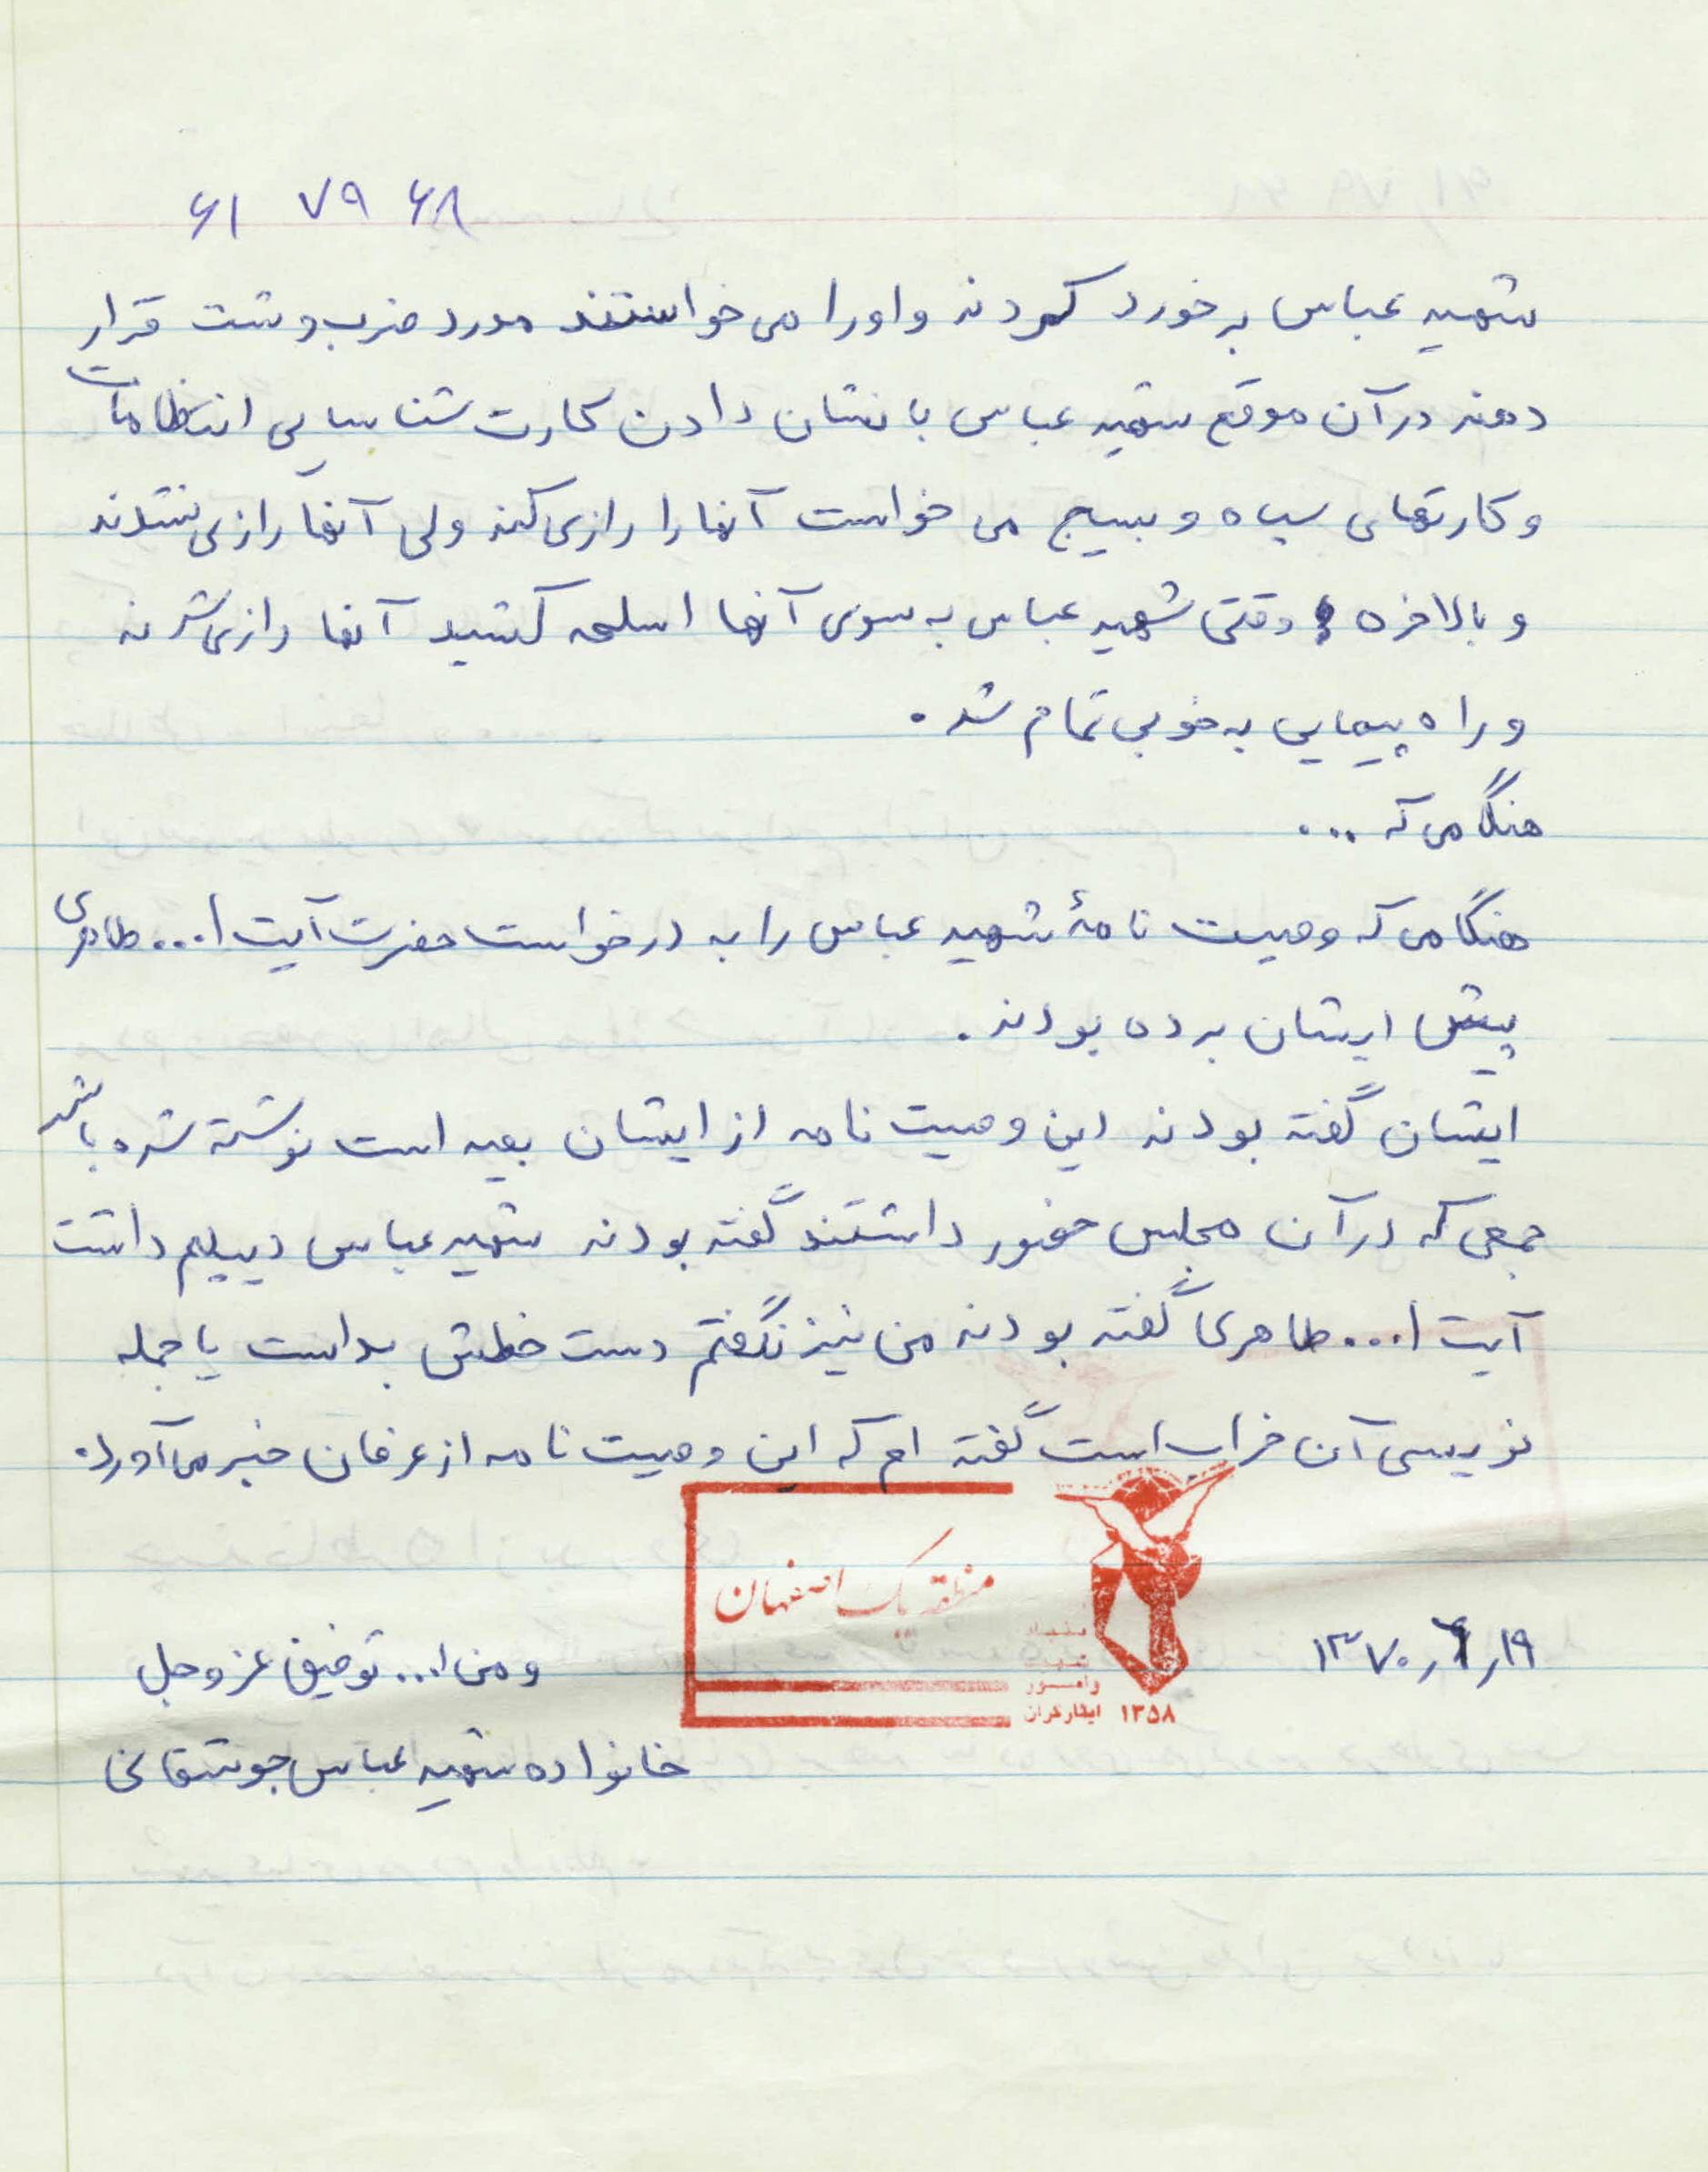 ۶۱ ۷۹ ۶۸
شهید عباس برخورد کردند و اورا می خواستند مورد ضرب و شت قرار
دهند در آن موقع شهید عباس با نشان دادن کارت شناسایی انتظامات
و کارتهای سپاه و بسیج می خواست آنها را رازی کند ولی آنها رازی نشدند
و بالاخره وقتی شهید عباس به سوی آنها اسلحه کشید آنها رازی شدند
و راه پیمایی به خوبی تمام شد.
هنگامی که ...
هنگامی که وصیت نامهٔ شهید عباس را به درخواست حضرت آیت ا... طاهری
پیش ایشان برده بودند.
ایشان گفته بودند این وصیت نامه از ایشان بعید است نوشته شده باشد
جمعی که در آن مجلس حضور داشتند گفته بودند شهید عباس دیپلم داشت
آیت ا... طاهری گفته بودند من نیز نگفتم دست خطش بد است یا جمله
نویسی آن خراب است گفته ام که این وصیت نامه از عرفان خبر می آورد.
منطقه یک اصفهان
بنیاد
شهید
و امور
ایثارگران ۱۳۵۸
۱۳۷۰٫۶٫۱۹
و من ا... توفیق عز و جل
خانواده شهید عباس جوشقانی